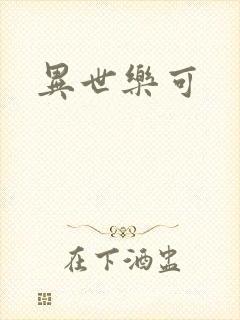 異世樂可
在下酒盅